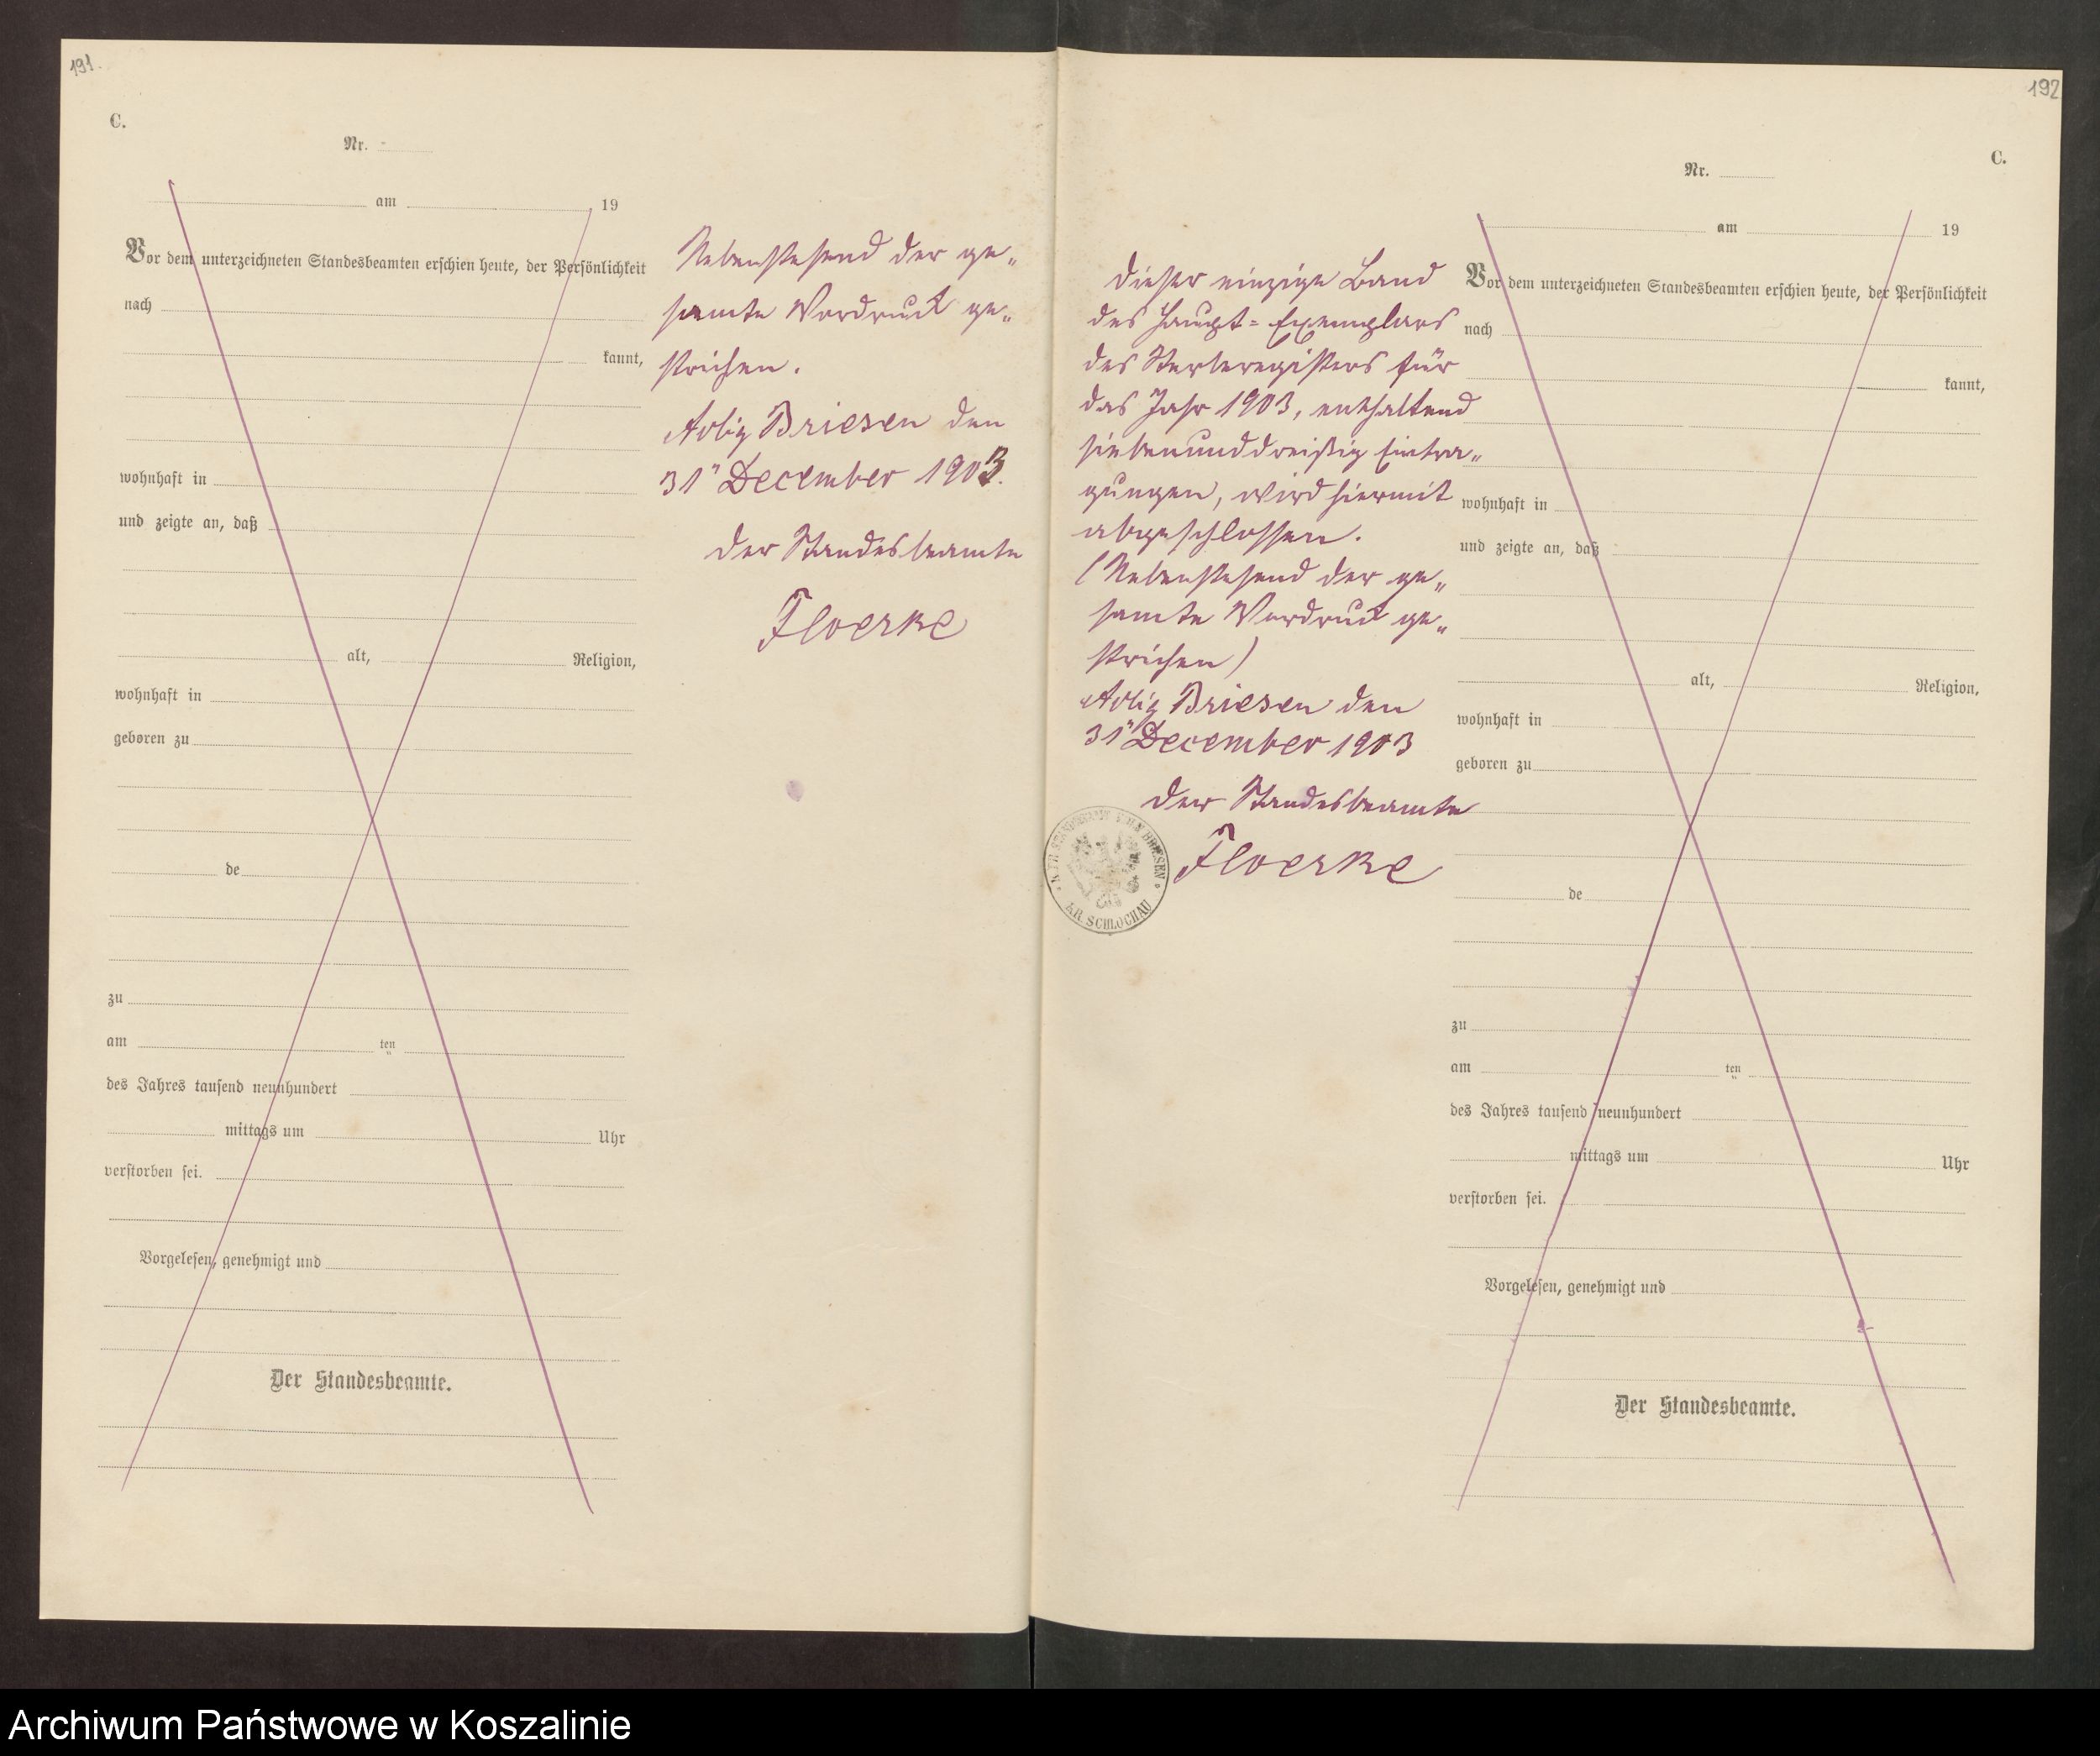 191.
C.
Nr.
am 19
Vor dem unterzeichneten Standesbeamten erschien heute, der Persönlichkeit
nach
kannt,
wohnhaft in
und zeigte an, daß
alt, Religion,
wohnhaft in
geboren zu
de
zu
am ten
des Jahres tausend neunhundert
mittags um Uhr
verstorben sei.
Vorgelesen, genehmigt und
Der Standesbeamte.
Nebenstehend der ge„
samte Vordruck ge„
strichen.
Adlig Briesen den
31" December 1903.
Der Standesbeamte
Floerke
192
C.
Dieser einzige Band
des Haupt=Exemplars
des Sterberegisters für
das Jahr 1903, enthaltend
siebenunddreißig Eintra„
gungen, wird hiermit
abgeschlossen.
(Nebenstehend der ge„
samte Vordruck ge„
strichen)
Adlig Briesen den
31" December 1903
Der Standesbeamte
Floerke
BRIESEN
KR. SCHLOCHAU
Nr.
am 19
Vor dem unterzeichneten Standesbeamten erschien heute, der Persönlichkeit
nach
kannt,
wohnhaft in
und zeigte an, daß
alt, Religion,
wohnhaft in
geboren zu
de
zu
am ten
des Jahres tausend neunhundert
mittags um Uhr
verstorben sei.
Vorgelesen, genehmigt und
Der Standesbeamte.
Archiwum Państwowe w Koszalinie